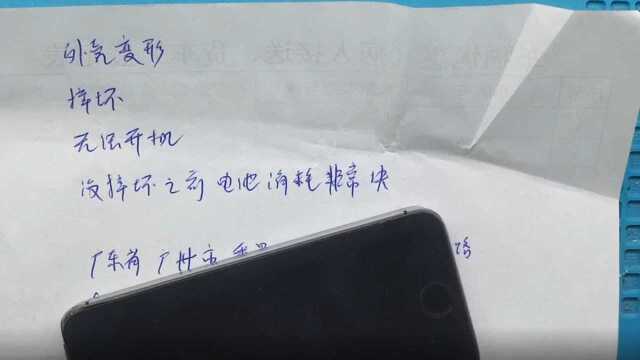 外壳变形
摔坏
无法开机
没摔坏之前电池消耗非常快
广东省广州市
路